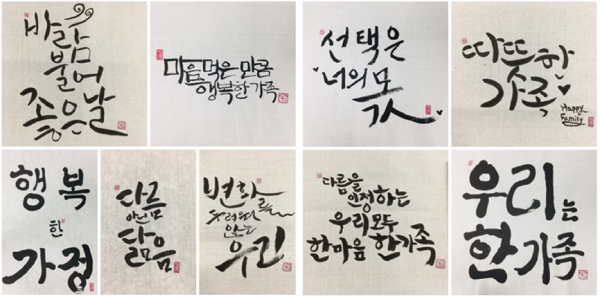 바람
불어
좋은날
마음먹은 만큼
행복한 가족
선택은
너의 몫
따뜻한
가족
Happy
Family
행복
한
가정
다름
아닌
닮음
변화를
두려워
않는
우리
다름을
인정하는
우리 모두
한마음 한가족
우리는
한가족